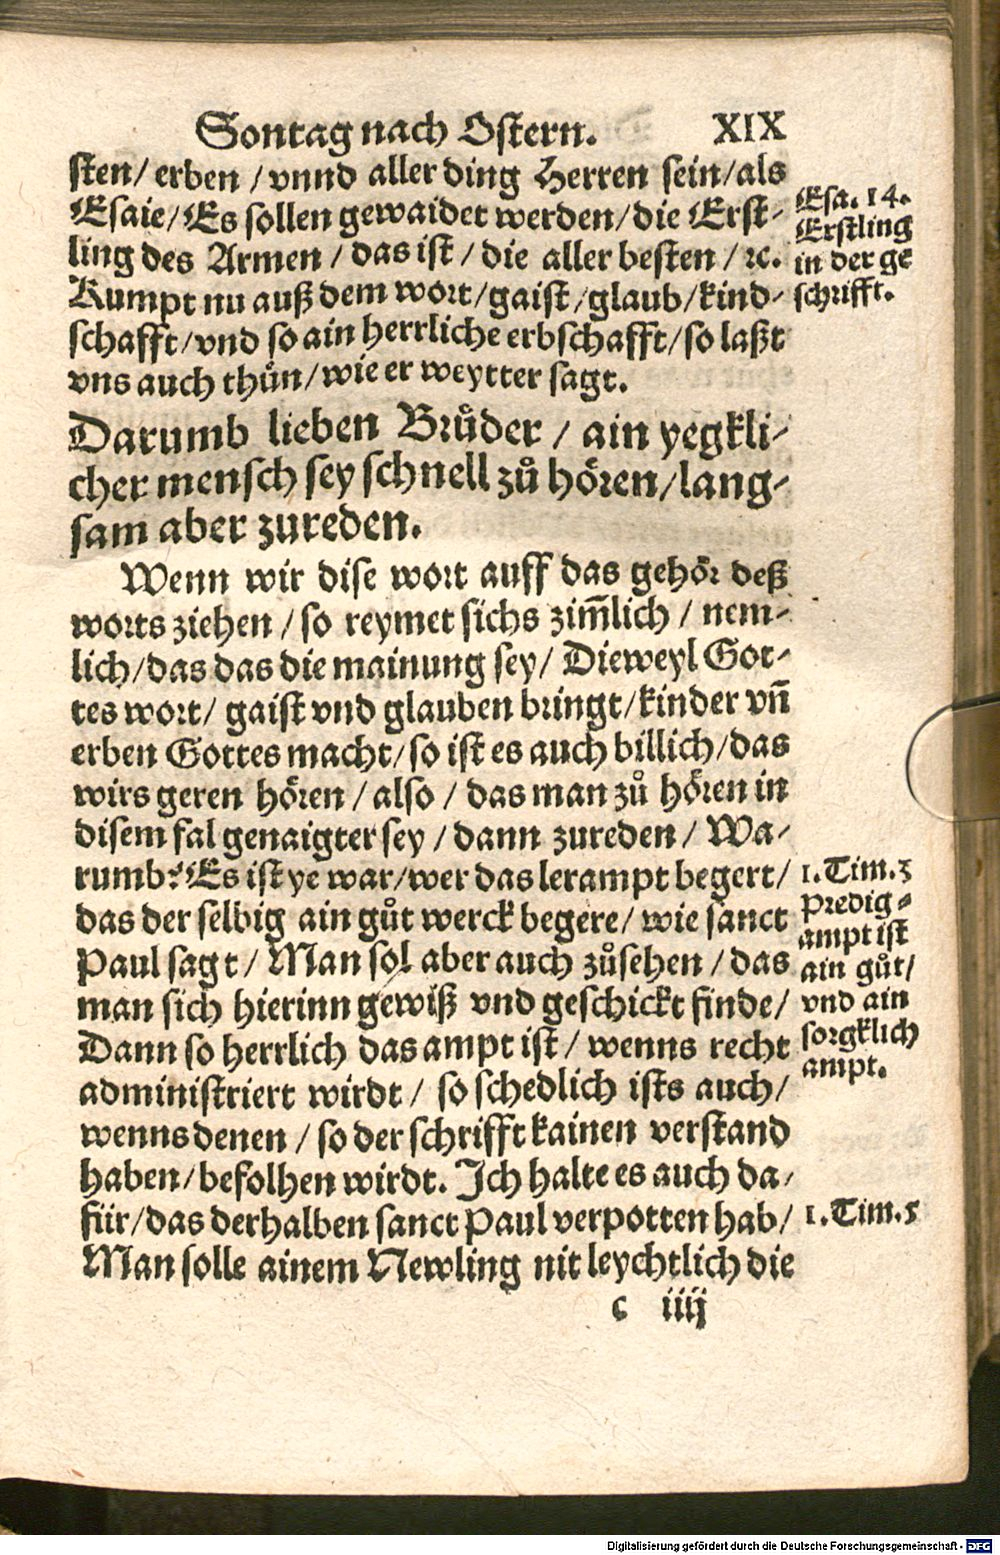 Sontag nach Ostern. XIX
sten/ erben / vnnd aller ding Herren sein/als
Esaie/Es sollen gewaidet werden/die Erst-
ling des Armen / das ist / die aller besten / ꝛc.
Kumpt nu auß dem wort/gaist/glaub/kind-
schafft/vnd so ain herrliche erbschafft/so laßt
vns auch thůn/wie er weytter sagt.
Esa. 14.
Erstling
in der ge
schrifft.
Darumb lieben Brůder / ain yegkli-
cher mensch sey schnell zů hören/lang-
sam aber zureden.
Wenn wir dise wort auff das gehör deß
worts ziehen / so reymet sichs zim̃lich / nem-
lich/das das die mainung sey/ Dieweyl Got-
tes wort/ gaist vnd glauben bringt/kinder vñ
erben Gottes macht/so ist es auch billich/das
wirs geren hören / also / das man zů hören in
disem fal genaigter sey / dann zureden / Wa-
rumb? Es ist ye war/wer das lerampt begert/
das der selbig ain gůt werck begere/ wie sanct
Paul sagt / Man sol aber auch zůsehen / das
man sich hierinn gewiß vnd geschickt finde/
Dann so herrlich das ampt ist / wenns recht
administriert wirdt / so schedlich ists auch/
wenns denen / so der schrifft kainen verstand
haben/befolhen wirdt. Ich halte es auch da-
für/das derhalben sanct Paul verpotten hab/
Man solle ainem Newling nit leychtlich die
1. Tim. 3
Predig-
ampt ist
ain gůt/
vnd ain
sorgklich
ampt.
1. Tim. 5
c iiij
Digitalisierung gefördert durch die Deutsche Forschungsgemeinschaft - DFG